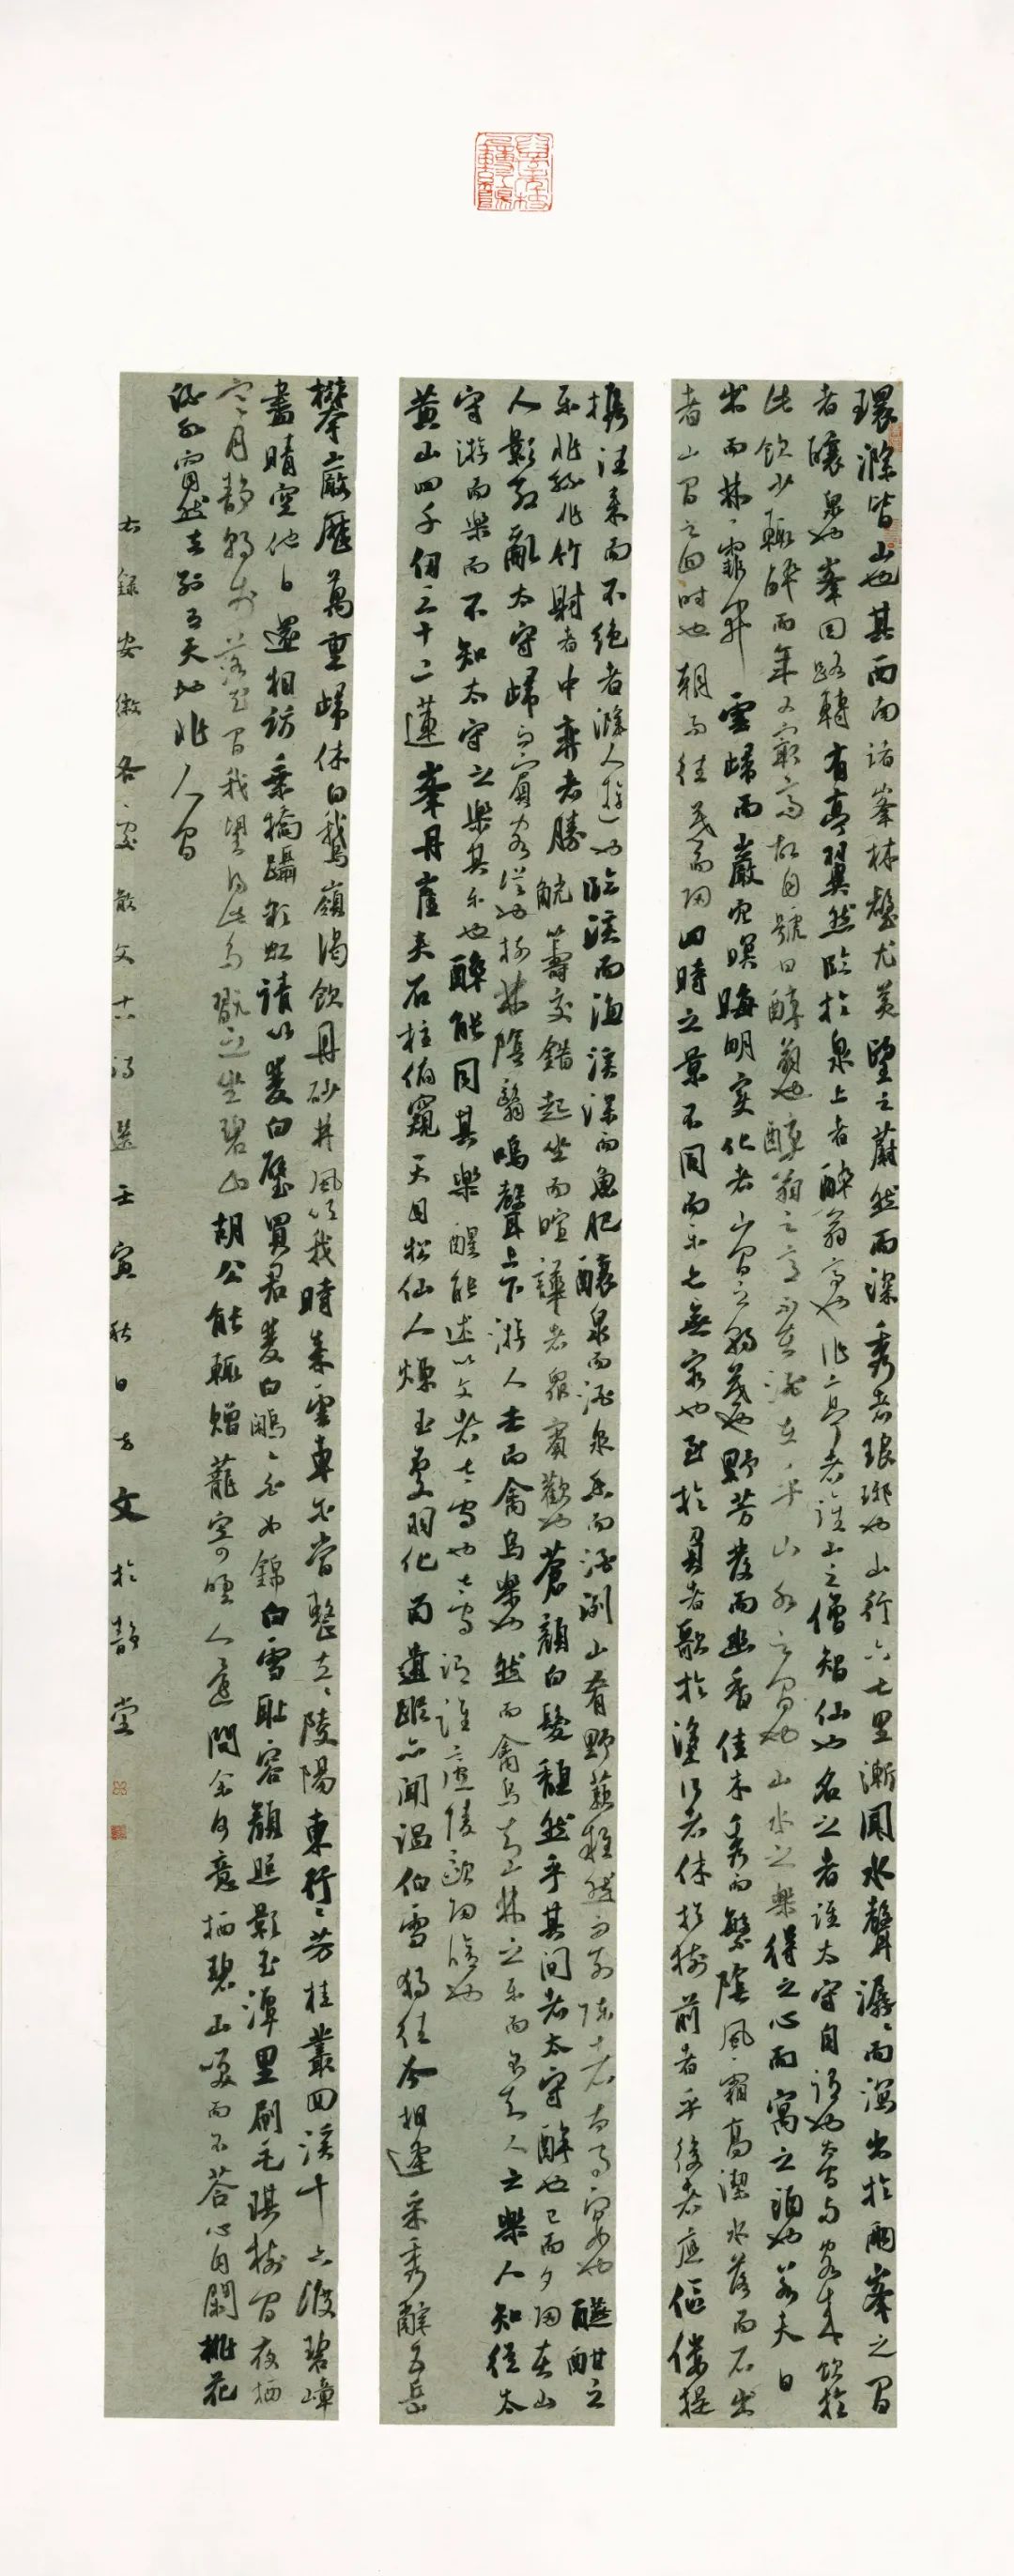 環滁皆山也其西南諸峯林壑尤美望之蔚然而深秀者琅琊也山行六七里漸聞水聲潺潺而瀉出於兩峯之間
者釀泉也峯回路轉有亭翼然臨於泉上者醉翁亭也作亭者誰山之僧智仙也名之者誰太守自謂也太守與客來飲於
此飲少輒醉而年又最高故自號曰醉翁也醉翁之意不在酒在乎山水之間也山水之樂得之心而寓之酒也若夫日
出而林霏開雲歸而巖穴暝晦明變化者山間之朝暮也野芳發而幽香佳木秀而繁陰風霜高潔水落而石出
者山間之四時也朝而往暮而歸四時之景不同而樂亦無窮也至於負者歌於塗行者休於樹前者呼後者應傴僂提
攜往來而不絕者滁人遊也臨溪而漁溪深而魚肥釀泉為酒泉香而酒洌山肴野蔌雜然而前陳者太守宴也醼酣之
樂非絲非竹射者中弈者勝觥籌交錯起坐而喧譁者眾賓歡也蒼顏白髮頹然乎其間者太守醉也已而夕陽在山
人影散亂太守歸而賓客從也樹林陰翳鳴聲上下游人去而禽鳥樂也然而禽鳥知山林之樂而不知人之樂人知從太
守游而樂而不知太守之樂其樂也醉能同其樂醒能述以文者太守也太守謂誰廬陵歐陽修也
黃山四千仞三十二蓮峯丹崖夾石柱窺天目松仙人煉玉處羽化留遺蹤亦聞溫伯雪獨往今相逢采秀辭五岳
攀巖歷萬重歸休白鵝嶺渴飲丹砂井風吹我時來雲車爾當整去去陵陽東行行芳桂叢回溪十六渡碧嶂
盡晴空他日還相訪乘橋躡彩虹請以雙白璧買君雙白鷴鷴白如錦白雪恥容顏照影玉潭裏刷毛琪樹間夜栖
寒月靜朝步落花閒我望得此鳥翫之坐碧山胡公能輒贈籠寄野人還問余何意栖碧山笑而不答心自閑桃花
流水窅然去別有天地非人間
右錄安徽各家散文古詩選壬寅秋日文於靜堂